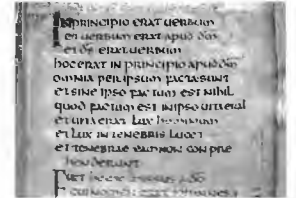 IN PRINCIPIO ERAT UERBUM
ET UERBUM ERAT APUD DM
ET DS ERAT UERBUM
HOC ERAT IN PRINCIPIO APUD DM
OMNIA PER IPSUM FACTA SUNT
ET SINE IPSO FACTUM EST NIHIL
QUOD FACTUM EST IN IPSO UITA ERAT
ET UITA ERAT LUX HOMINUM
ET LUX IN TENEBRIS LUCET
ET TENEBRAE EAM NON CON PRE
HENDERUNT
FUIT HOMO MISSUS A DO
CUI NOMEN ERAT IOHANNES